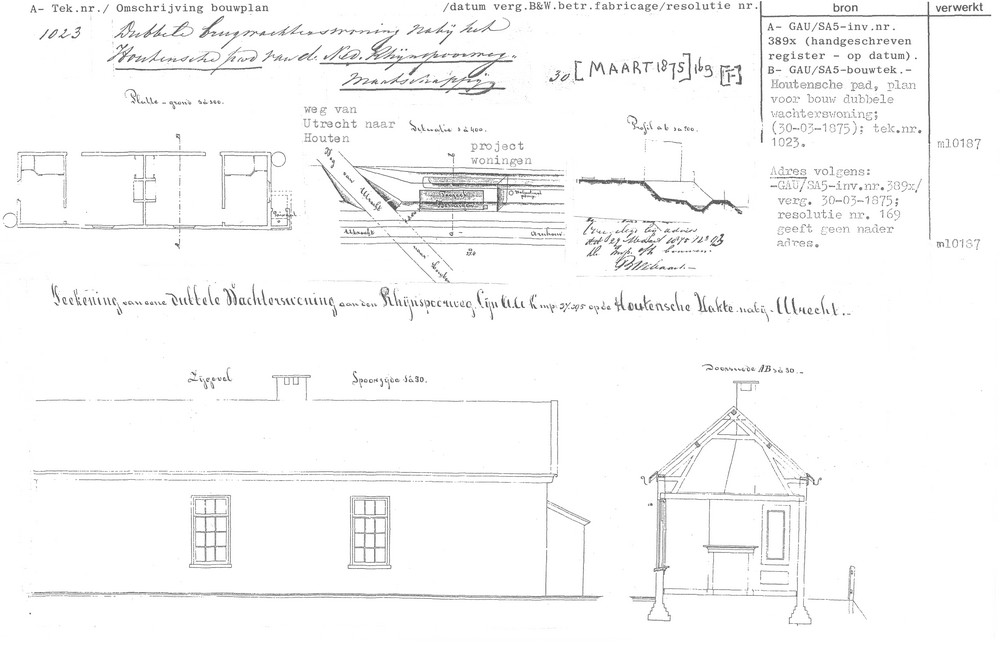 A- Tek.nr./ Omschrijving bouwplan
/datum verg.B&W.betr.fabricage/resolutie nr.
bron
verwerkt
1023 Dubbele brugwachterswoning nabij het
Houtensche pad van d. Ned. Rhijnspoorweg-
Maatschappij
30 [MAART 1875] 169 [T]
A- GAU/SA5-inv.nr.
389x (handgeschreven
register - op datum).
B- GAU/SA5-bouwtek.-
Houtensche pad, plan
voor bouw dubbele
wachterswoning;
(30-03-1875); tek.nr.
1023.
m10187
Adres volgens:
-GAU/SA5-inv.nr.389x/
verg. 30-03-1875;
resolutie nr. 169
geeft geen nader
adres.
m10187
Platte-grond
weg van
Utrecht naar
Houten
Situatie
project
woningen
Profil ab
Weg van Utrecht
Utrecht
Arnhem
van Houten
Teekening van eene dubbele Wachterswoning aan den Rhijnspoorweg, Lijn op de Houtensche Vlakte nabij Utrecht.
Zijgevel
Spoorzijde
Doorsnede AB